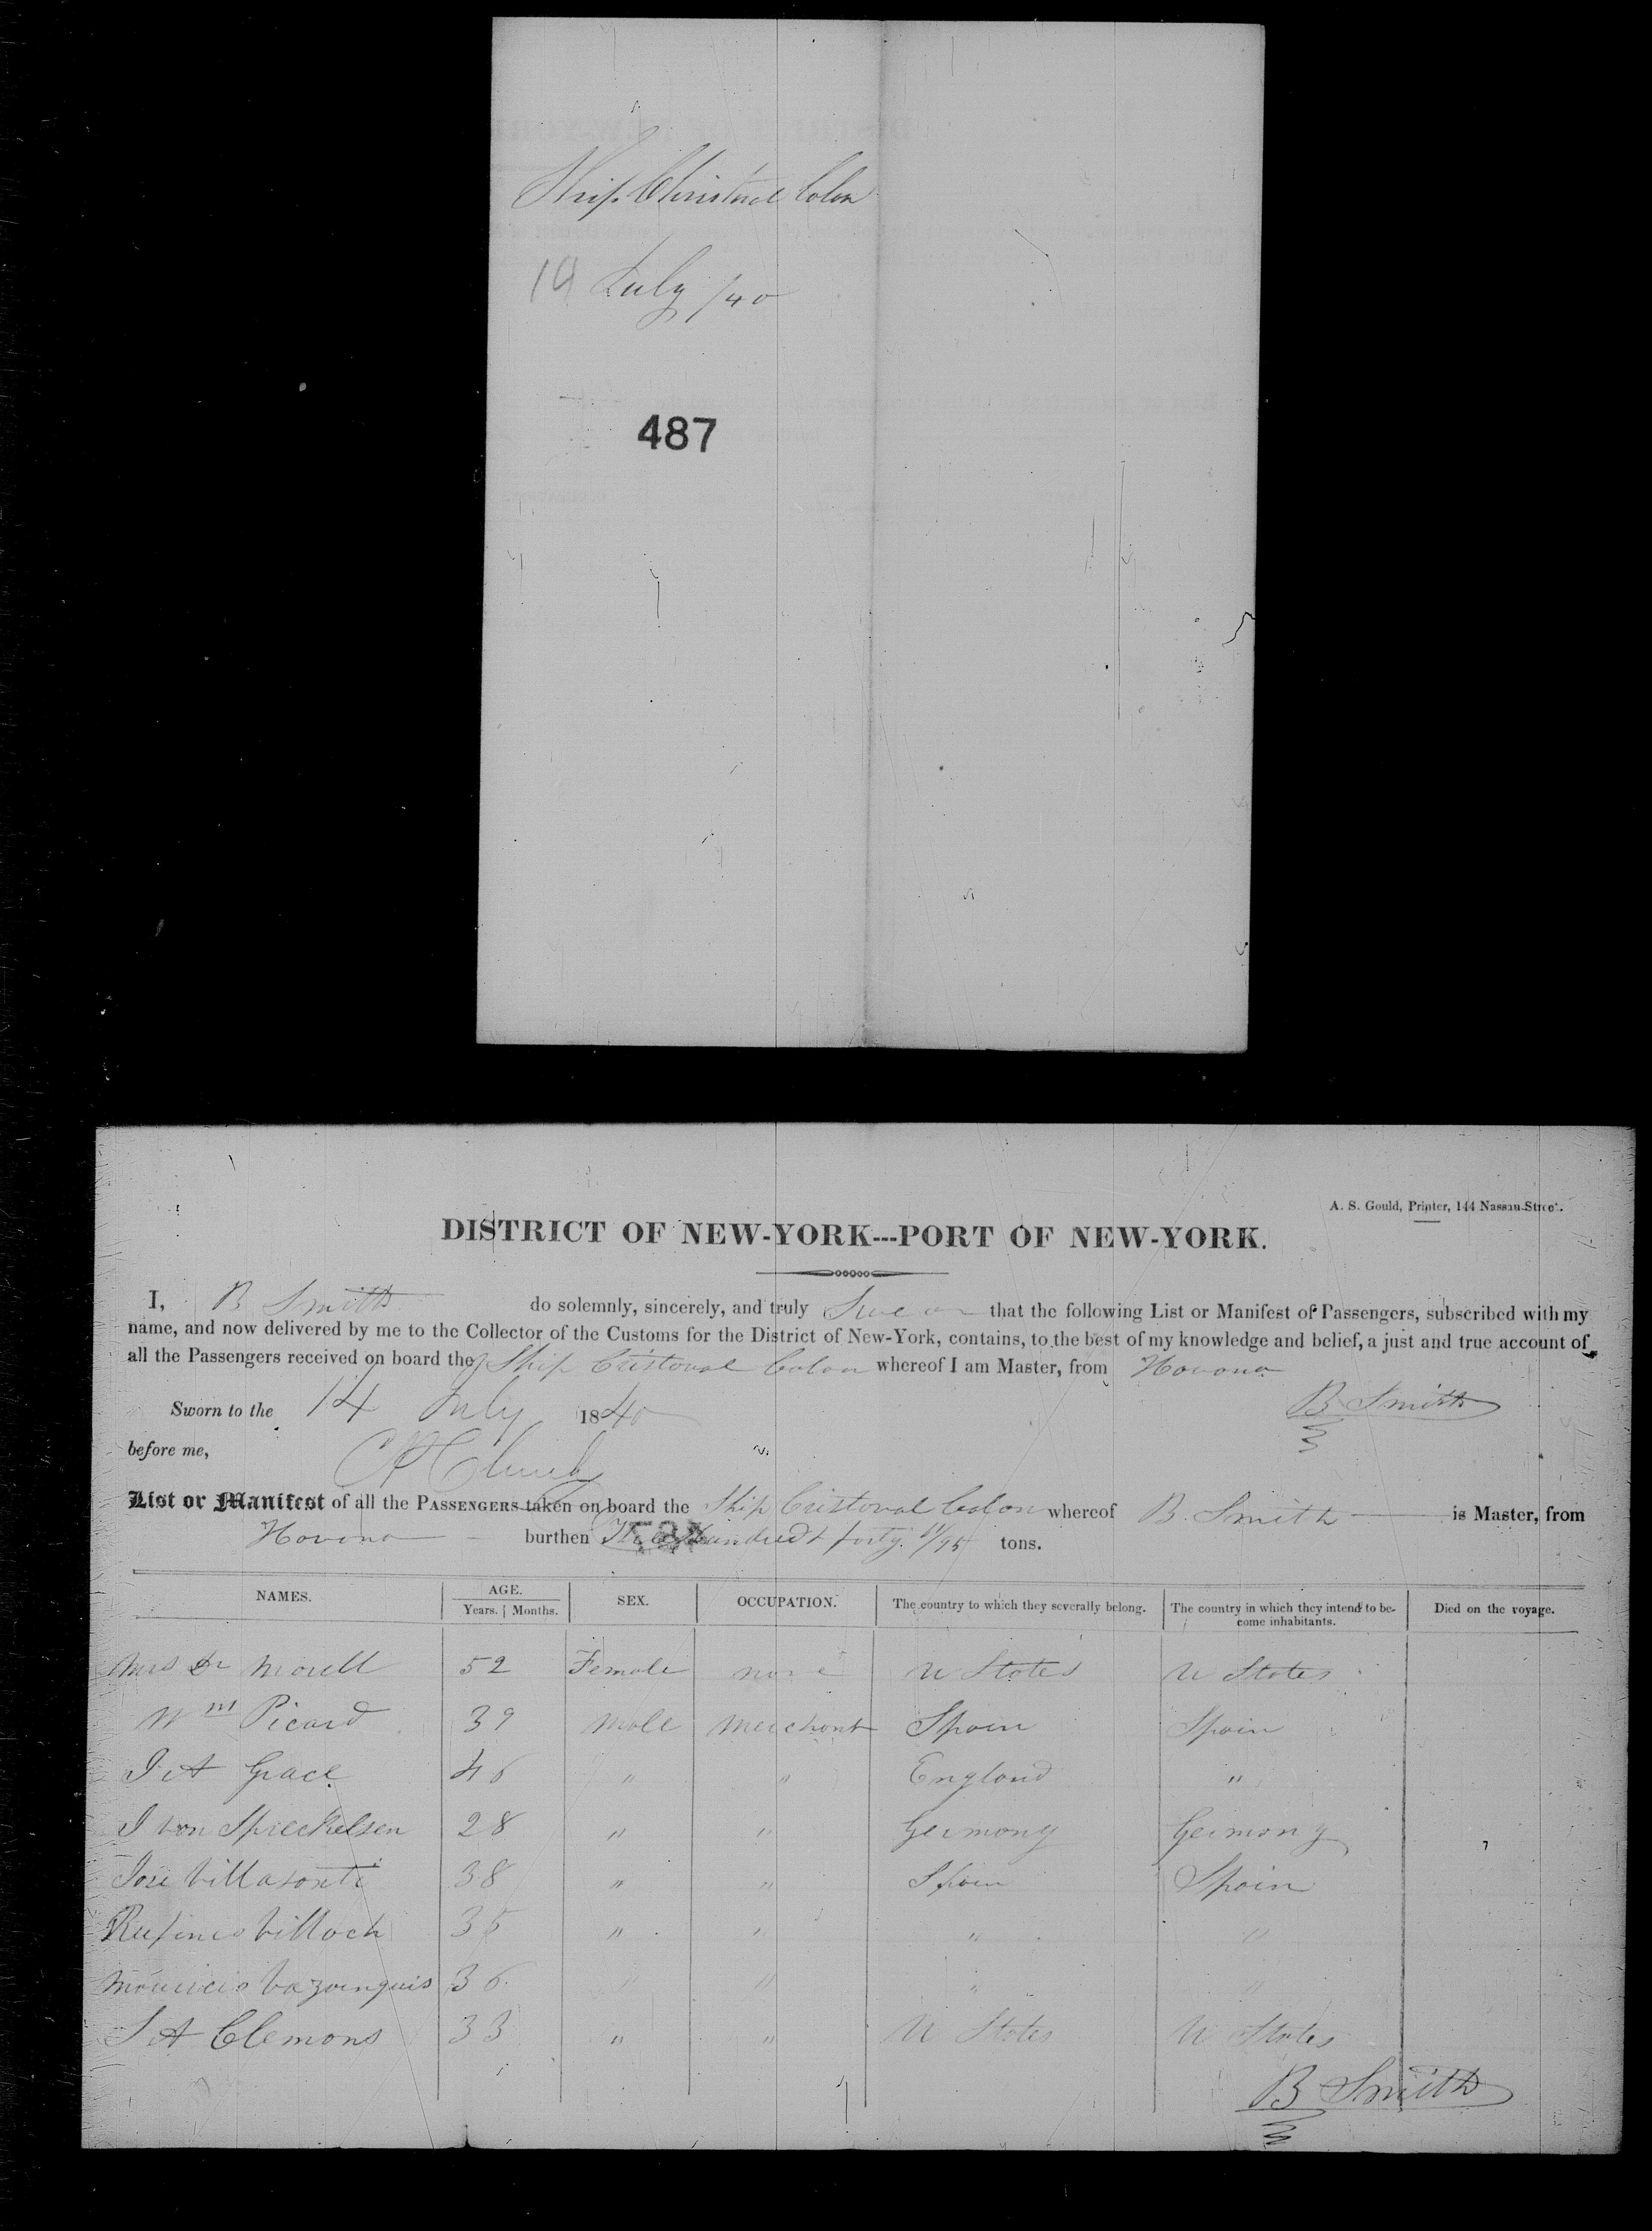 Ship Christoval Colon
14 July /40
487
A. S. Gould, Printer, 144 Nassau-Street.
DISTRICT OF NEW-YORK---PORT OF NEW-YORK.
I, B Smith do solemnly, sincerely, and truly Swear that the following List or Manifest of Passengers, subscribed with my
name, and now delivered by me to the Collector of the Customs for the District of New-York, contains, to the best of my knowledge and belief, a just and true account of
all the Passengers received on board the Ship Cristoval Colon whereof I am Master, from Havana
B Smith
Sworn to the 14 July 1840
before me,
List or Manifest of all the PASSENGERS taken on board the Ship Cristoval Colon whereof B. Smith is Master, from
Havana burthen Hundred & forty tons.
NAMES. AGE. SEX. OCCUPATION. The country to which they severally belong. The country in which they intend to be- Died on the voyage.
Years. Months. come inhabitants.
Mrs Dr Morell 52 Female none U States U States
Wm Picard 39 Male Merchant Spain Spain
J A Grace 46 " " England "
J von Spreckelsen 28 " " Germany Germany
Jose Villasonte 38 " " Spain Spain
Rufino Villoch 35 " " " "
Mauricio 36 " " " "
S A Clemons 33 " " U States U States
B Smith